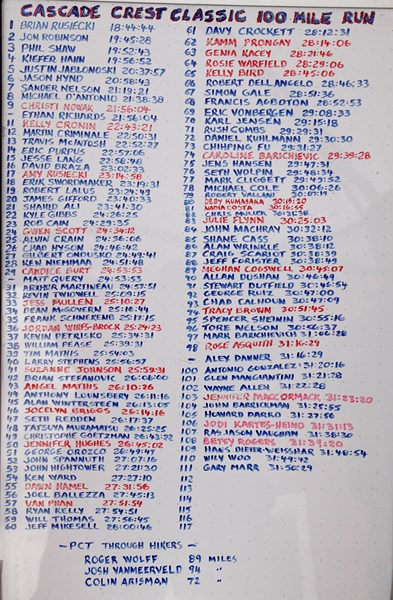 CASCADE CREST CLASSIC 100 MILE RUN
1 BRIAN RUSIECKI 18:44:44
2 JON ROBINSON 19:45:28
3 PHIL SHAW 19:52:43
4 KIEFER HAHN 19:56:52
5 JUSTIN JABLONOSKI 20:37:57
6 JASON HYND 20:58:43
7 SANDER NELSON 21:19:21
8 MICHAEL D'ANTONIO 21:38:38
9 CHRISTI NOWAK 21:56:04
- ETHAN RICHARDS 21:56:04
11 KELLY CRONIN 22:43:21
12 MARTIN CRIMINALE 22:51:41
13 TRAVIS McINTOSH 22:52:27
14 ERIC PURPUS 22:57:06
15 JESSE LANG 22:58:48
16 DAVID BRAZA 23:02:33
17 AMY RUSIECKI 23:14:58
18 ERIK SWORDMAKER 23:19:31
19 ROBERT LALUS 23:29:49
20 JAMES GIFFORD 23:40:33
21 SHAHID ALI 23:41:30
22 KYLE GIBBS 24:26:25
23 ROB CAIN 24:29:35
24 GWEN SCOTT 24:34:12
25 ALVIN CRAIN 24:36:06
26 CHAD HYSON 24:46:42
27 GILBERT ONDUSKO 24:49:41
28 KEN NIEMIMAA 24:51:48
29 CANDICE BURT 24:53:53
- MATT QUERY 24:53:53
31 ARTHUR MARTINEAU 24:57:51
32 KEVIN TWOHEY 25:09:15
33 JESS MULLEN 25:10:27
34 DEAN McGOVERN 25:14:44
35 FRANK SCHNEKENO 25:17:25
36 JORDAN WIRFS-BROCK 25:24:23
37 KEVIN PETRISKO 25:29:41
38 WILLIAM PEASE 25:39:31
39 TIM MATHIS 25:54:03
40 LARRY STEPHENS 25:56:57
41 SUZANNE JOHNSON 25:59:31
42 BRIAN STEFANOVIC 26:02:00
43 ANGEL MATHIS 26:10:26
44 ANTHONY LOUNSBERY 26:11:16
45 ALAN WINTERSTEEN 26:13:09
46 JOCELYN BRIGGS 26:14:16
47 SETH REDDEN 26:17:37
48 TATSUYA MURAMATSU 26:25:25
49 CHRISTOPHE GOETZMAN 26:43:22
50 JENNIFER HUGHES 26:45:02
51 GEORGE OROZCO 26:49:47
52 JOHN SPANNUTH 27:07:16
53 JOHN HIGHTOWER 27:21:30
54 KEN WARD 27:27:10
55 DAWN HAMEL 27:31:56
56 JOEL BALLEZZA 27:45:13
57 VAN PHAN 27:51:54
58 RYAN KELLY 27:54:51
59 WILL THOMAS 27:56:45
60 JEFF MIKESELL 28:00:46
61 DAVY CROCKETT 28:12:31
62 KAMM PRONGAY 28:14:06
63 GENIA KACEY 28:21:46
64 ROSIE WARFIELD 28:29:06
65 KELLY BIRD 28:45:06
66 ROBERT DELLANGELO 28:46:33
67 SIMON GALE 28:51:36
68 FRANCIS AGBOTON 28:52:53
69 ERIC VONBERGEN 29:08:33
70 KARL JENSEN 29:15:18
71 RUSH COMBS 29:29:31
72 DANIEL KUHLMANN 29:30:30
73 CHIHPING FU 29:31:27
74 CAROLINE BARICHIEVIC 29:39:28
75 JENS HANSEN 29:47:41
76 SETH WOLPIN 29:48:34
77 MARK CLIGGETT 29:49:52
78 MICHAEL COLE 30:06:26
79 ROBERT VALLAND 30:07:19
80 DEBY KUMASAKA 30:15:20
81 NADIA COSTA 30:16:54
82 CHRIS MULLER 30:21:38
83 JULIE FLYNN 30:25:03
84 JOHN MACHRAY 30:32:12
85 SHANE CASS 30:38:10
86 ALAN WRINKLE 30:38:12
87 CRAIG SCARLOT 30:38:39
88 JEFF FORISTER 30:38:49
89 MEGHAN COGSWELL 30:45:07
90 ALLAN DUSHAN 30:46:49
91 STEWART DUTFIELD 30:46:54
92 GEORGE RUTZ 30:47:00
93 CHAD CALHOUN 30:47:09
94 TRACY BROWN 30:51:45
95 SPENCER SHEININ 30:55:16
96 TORE NELSON 30:56:37
97 MARK BARICHEVICH 31:06:28
98 ROSE ASQUITH 31:16:29
- ALEY DANNER 31:16:29
100 ANTONIO GONZALEZ 31:20:16
101 GLEN MANGIANTINI 31:21:28
102 WAYNE ALLEN 31:22:28
103 JENNIFER MACCORMACK 31:23:20
104 JOHN BARICKMAN 31:25:55
105 HOWARD DARKO 31:27:56
106 JODI KARTES-HEINO 31:31:13
107 RAS JASON VAUGHAN 31:38:30
108 BETSY ROGERS 31:39:20
109 HANS DIETER-WEISSHAR 31:48:54
110 WILY WOO 31:49:42
111 GARY MARR 31:50:29
112
113
114
115
116
117
- PCT THROUGH HIKERS -
ROGER WOLFF 89 MILES
JOSH VANMEERVELD 94 "
COLIN ARISMAN 72 "